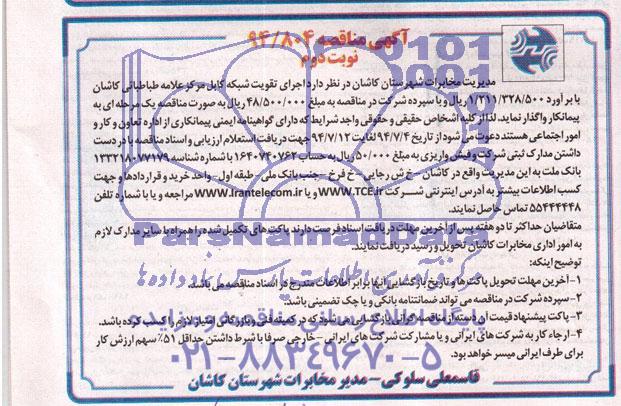 آگهی مناقصه ۹۴/۸۰۴
نوبت دوم
مدیریت مخابرات شهرستان کاشان در نظر دارد اجرای تقویت شبکه کابل مرکز علامه طباطبائی کاشان
با برآورد ۱/۲۱۱/۳۲۸/۵۰۰ ریال و با سپرده شرکت در مناقصه به مبلغ ۴۸/۵۰۰/۰۰۰ ریال به صورت مناقصه یک مرحله ای به
پیمانکار واگذار نماید. لذا از کلیه اشخاص حقیقی و حقوقی واجد شرایط که دارای گواهینامه ایمنی پیمانکاری از اداره تعاون و کار و
امور اجتماعی هستند دعوت می شود از تاریخ ۹۴/۷/۴ لغایت ۹۴/۷/۱۲ جهت دریافت استعلام ارزیابی و اسناد مناقصه با در دست
داشتن مدارک ثبتی شرکت و فیش واریزی به مبلغ ۵۰/۰۰۰ ریال به حساب ۱۶۴۰۷۴۰۷۶۲ با شماره شناسه ۱۳۳۲۱۸۰۷۷۱۷۹
بانک ملت به این مدیریت واقع در کاشان - خ ش رجایی - خ فرخ - جنب بانک ملی - طبقه اول - واحد خرید و قراردادها و جهت
کسب اطلاعات بیشتر به آدرس اینترنتی شرکت WWW.TCE.ir و یا WWW.Irantelecom.ir مراجعه و یا با شماره تلفن
۵۵۴۴۴۴۴۸ تماس حاصل نمایند.
متقاضیان حداکثر تا دو هفته پس از آخرین مهلت دریافت اسناد فرصت دارند پاکت های تکمیل شده را همراه با سایر مدارک لازم
به امور اداری مخابرات کاشان تحویل و رسید دریافت نمایند.
توضیح اینکه:
۱- آخرین مهلت تحویل پاکت ها و تاریخ بازگشایی آنها برابر اطلاعات مندرج در اسناد مناقصه می باشد.
۲- سپرده شرکت در مناقصه می تواند ضمانتنامه بانکی و یا چک تضمینی باشد.
۳- پاکت پیشنهاد قیمت آن دسته از مناقصه گرانی بازگشایی می شود که در کمیته فنی و بازرگانی امتیاز لازم را کسب کرده باشد.
۴- ارجاء کار به شرکت های ایرانی و یا مشارکت شرکت های ایرانی - خارجی صرفا با شرط داشتن حداقل ۵۱٪ سهم ارزش کار
برای طرف ایرانی میسر خواهد بود.
قاسمعلی سلوکی - مدیر مخابرات شهرستان کاشان
ParsNamad
۰۲۱-۸۸۳۴۹۶۷۰-۵